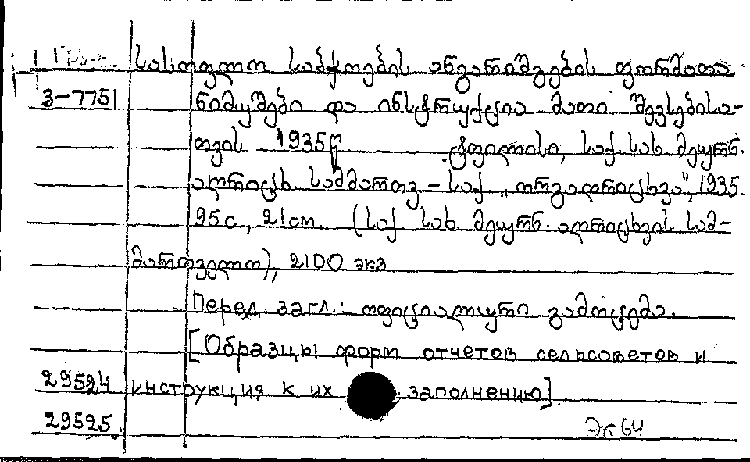 სასოფლო საბჭოების ანგარიშგების ფორმათა
3-7751 ნიმუშები და ინსტრუქცია მათი შევსებისა-
თვის 1935წ ტფილისი, საქ. სახ. მეურნ.
აღრიცხ სამმართვ – საქ „ორგაღრიცხვა", 1935.
95с, 21см. (საქ სახ. მეურნ. აღრიცხვის სამ-
მართველო), 2100 экз
Перед загл.: ოფიციალური გამოცემა.
[Образцы форм отчетов сельсоветов и
29524 инструкция к их заполнению]
29525. Эк64